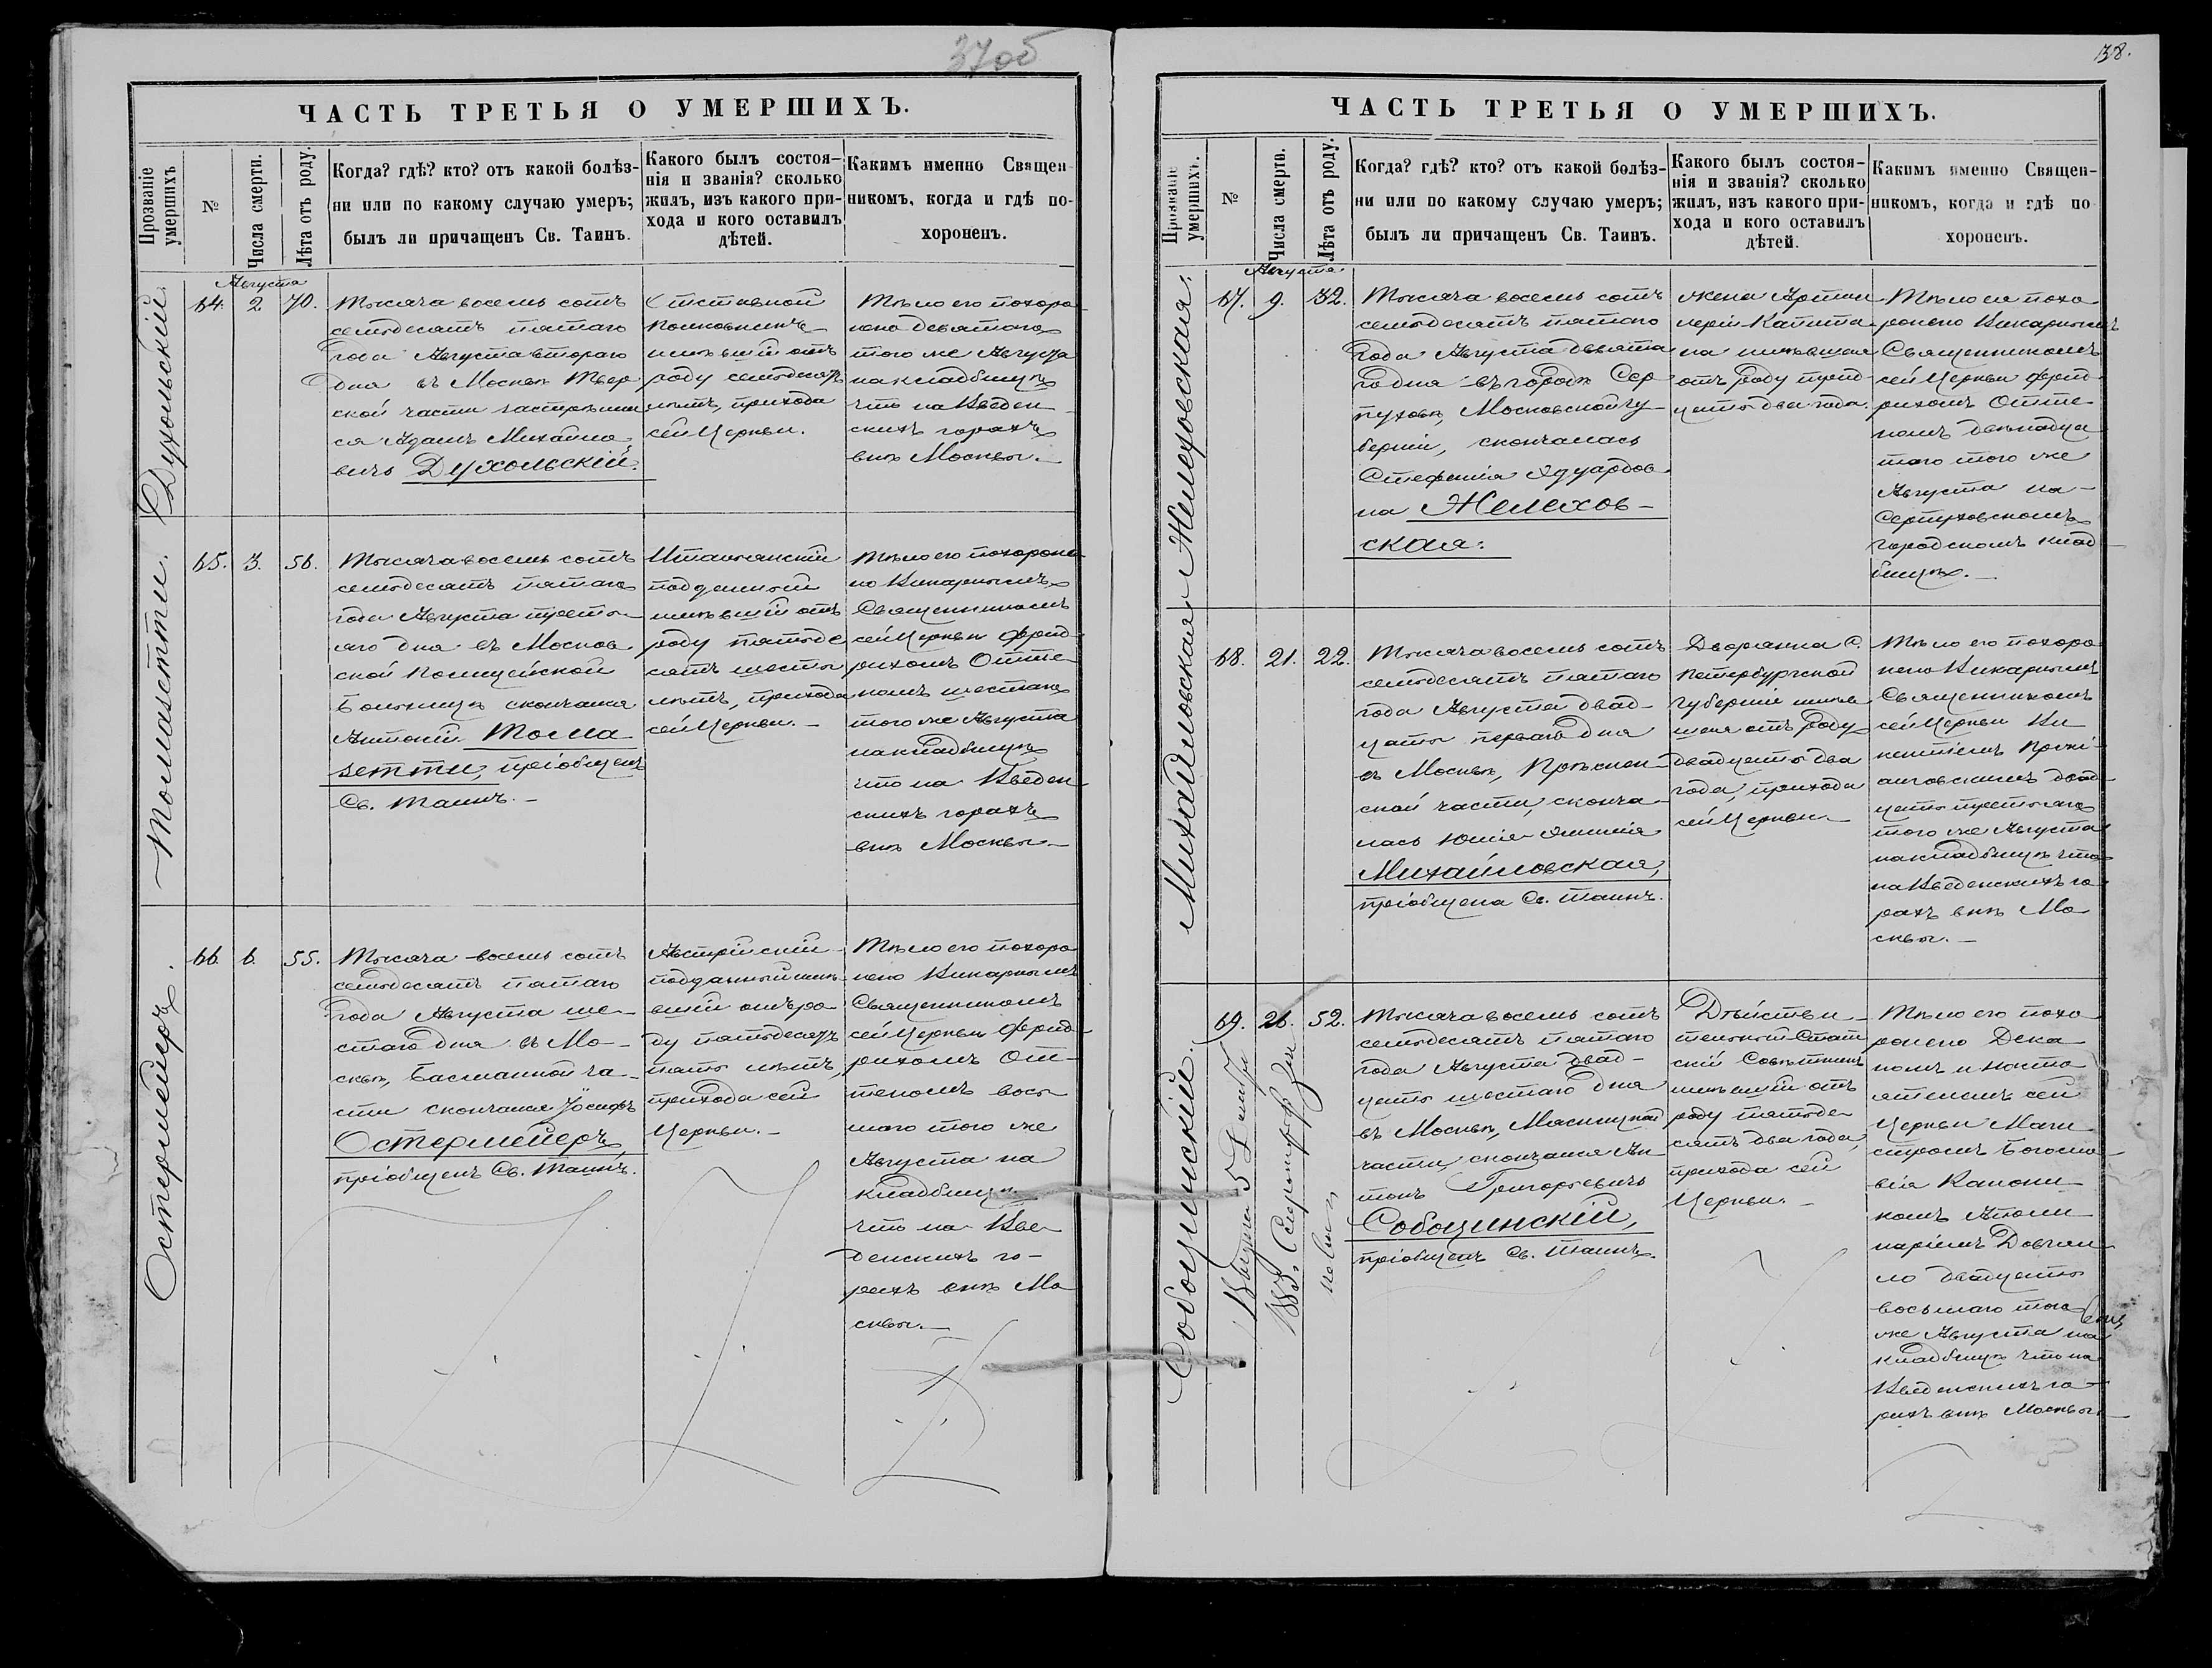 37об
ЧАСТЬ ТРЕТЬЯ О УМЕРШИХЪ.
Прозваніе умершихъ
№
Числа смерти.
Лѣта отъ роду.
Когда? гдѣ? кто? отъ какой болѣз-
ни или по какому случаю умеръ;
былъ ли причащенъ Св. Таинъ.
Какого былъ состоя-
нія и званія? сколько
жилъ, изъ какого при-
хода и кого оставилъ
дѣтей.
Какимъ именно Священ-
никомъ, когда и гдѣ по-
хороненъ.
Августа
Духольскій.
64. 2 70.
Тысяча восемь сотъ
семьдесятъ пятаго
года Августа втораго
дня въ Москвѣ Твер
ской части застрѣлил
ся Адамъ Михайло
вичъ Духольскій.
Отставной
Полковникъ
жившій отъ
роду семьдесятъ
лѣтъ, прихода
сей Церкви.
Тѣло его похоро
нено девятаго
того же Августа
на кладбищѣ
что на Введен
скихъ горахъ
внѣ Москвы.
Томазетти.
65. 3. 56.
Тысяча восемь сотъ
семьдесятъ пятаго
года Августа треть
яго дня въ Москов
ской Полицейской
Больницѣ скончался
Антоній Тома
зетти, пріобщенъ
Св. Таинъ.
Итальянскій
подданный
жившій отъ
роду пятьде
сятъ шесть
лѣтъ, прихода
сей Церкви.
Тѣло его похороне
но Викарнымъ
Священникомъ
сей Церкви Фрид
рихомъ Отте
номъ шестаго
того же Августа
на кладбищѣ
что на Введен
скихъ горахъ
внѣ Москвы.
Остермейеръ.
66. 6. 55.
Тысяча восемь сотъ
семьдесятъ пятаго
года Августа ше-
стаго дня въ Мо-
сквѣ, Басманной ча-
сти скончался Іосифъ
Остермейеръ,
пріобщенъ Св. Таинъ.
Австрійскій
подданный жив
вшій отъ ро-
ду пятьдесятъ
пять лѣтъ,
прихода сей
Церкви.
Тѣло его похоро
нено Викарнымъ
Священникомъ
сей Церкви Фрид
рихомъ От-
теномъ вось
маго того же
Августа на
кладбищѣ
что на Вве
денскихъ го-
рахъ внѣ Мо
сквы.
38.
ЧАСТЬ ТРЕТЬЯ О УМЕРШИХЪ.
Прозваніе умершихъ.
№
Числа смерти.
Лѣта отъ роду.
Когда? гдѣ? кто? отъ какой болѣз-
ни или по какому случаю умеръ;
былъ ли причащенъ Св. Таинъ.
Какого былъ состоя-
нія и званія? сколько
жилъ, изъ какого при-
хода и кого оставилъ
дѣтей.
Какимъ именно Священ-
никомъ, когда и гдѣ по
хороненъ.
Августа
Желеховская.
67. 9. 32.
Тысяча восемь сотъ
семьдесятъ пятаго
года Августа девята
го дня въ городѣ Сер
пуховѣ, Московской гу-
берніи, скончалась
Стефанія Эдуардов
на Желехов-
ская.
жена Артил
леріи Капита
на жившая
отъ роду трид
цать два года.
Тѣло ея похо
ронено Викарнымъ
Священникомъ
сей Церкви Фрид
рихомъ Отте
номъ двѣнадца
таго того же
Августа на-
Серпуховскомъ
городскомъ клад
бищѣ.
Михайловская
68. 21. 22.
Тысяча восемь сотъ
семьдесятъ пятаго
года Августа двад-
цать перваго дня
въ Москвѣ, Прѣснен-
ской части, сконча-
лась Юлія Эмилія
Михайловская,
пріобщена Св. Таинъ.
Дворянка С.
Петербургской
губерніи жив
шая отъ роду
двадцать два
года, прихода
сей Церкви.
Тѣло его похоро
нено Викарнымъ
Священникомъ
сей Церкви Ви
кентіемъ
двад
цать третьяго
того же Августа
на кладбищѣ что
на Введенскихъ го
рахъ внѣ Мо
сквы.
Собощинскій.
69. 26. 52.
Тысяча восемь сотъ
семьдесятъ пятаго
года Августа двад-
цать шестаго дня
въ Москвѣ, Мясницкой
части, скончался Ан
тонъ Григорьевичъ
Собощинскій,
пріобщенъ Св. Таинъ.
Дѣйстви
тельный Стат
скій Совѣтникъ
жившій отъ
роду пятьде
сятъ два года,
прихода сей
Церкви.
Тѣло его похо
ронено Дека
номъ и Насто
ятелемъ сей
Церкви Маги
стромъ Богосло
вія Канони
комъ Аполи
наріемъ Довгял
ло двадцать
восьмаго того
же Августа на
кладбищѣ что на
Введенскихъ го
рахъ внѣ Москвы.